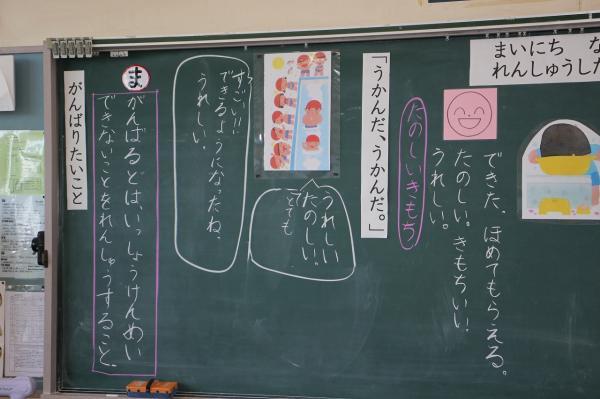 まいにち　な
れんしゅうした
できた。ほめてもらえる。
たのしい。きもちいい！
うれしい。
たのしいきもち
「うかんだ、うかんだ。」
うれしい
たのしい！
とても
すごい！！
できるようになったね。
うれしい。
ま
がんばるとは、いっしょうけんめい
できないことをれんしゅうすること。
がんばりたいこと